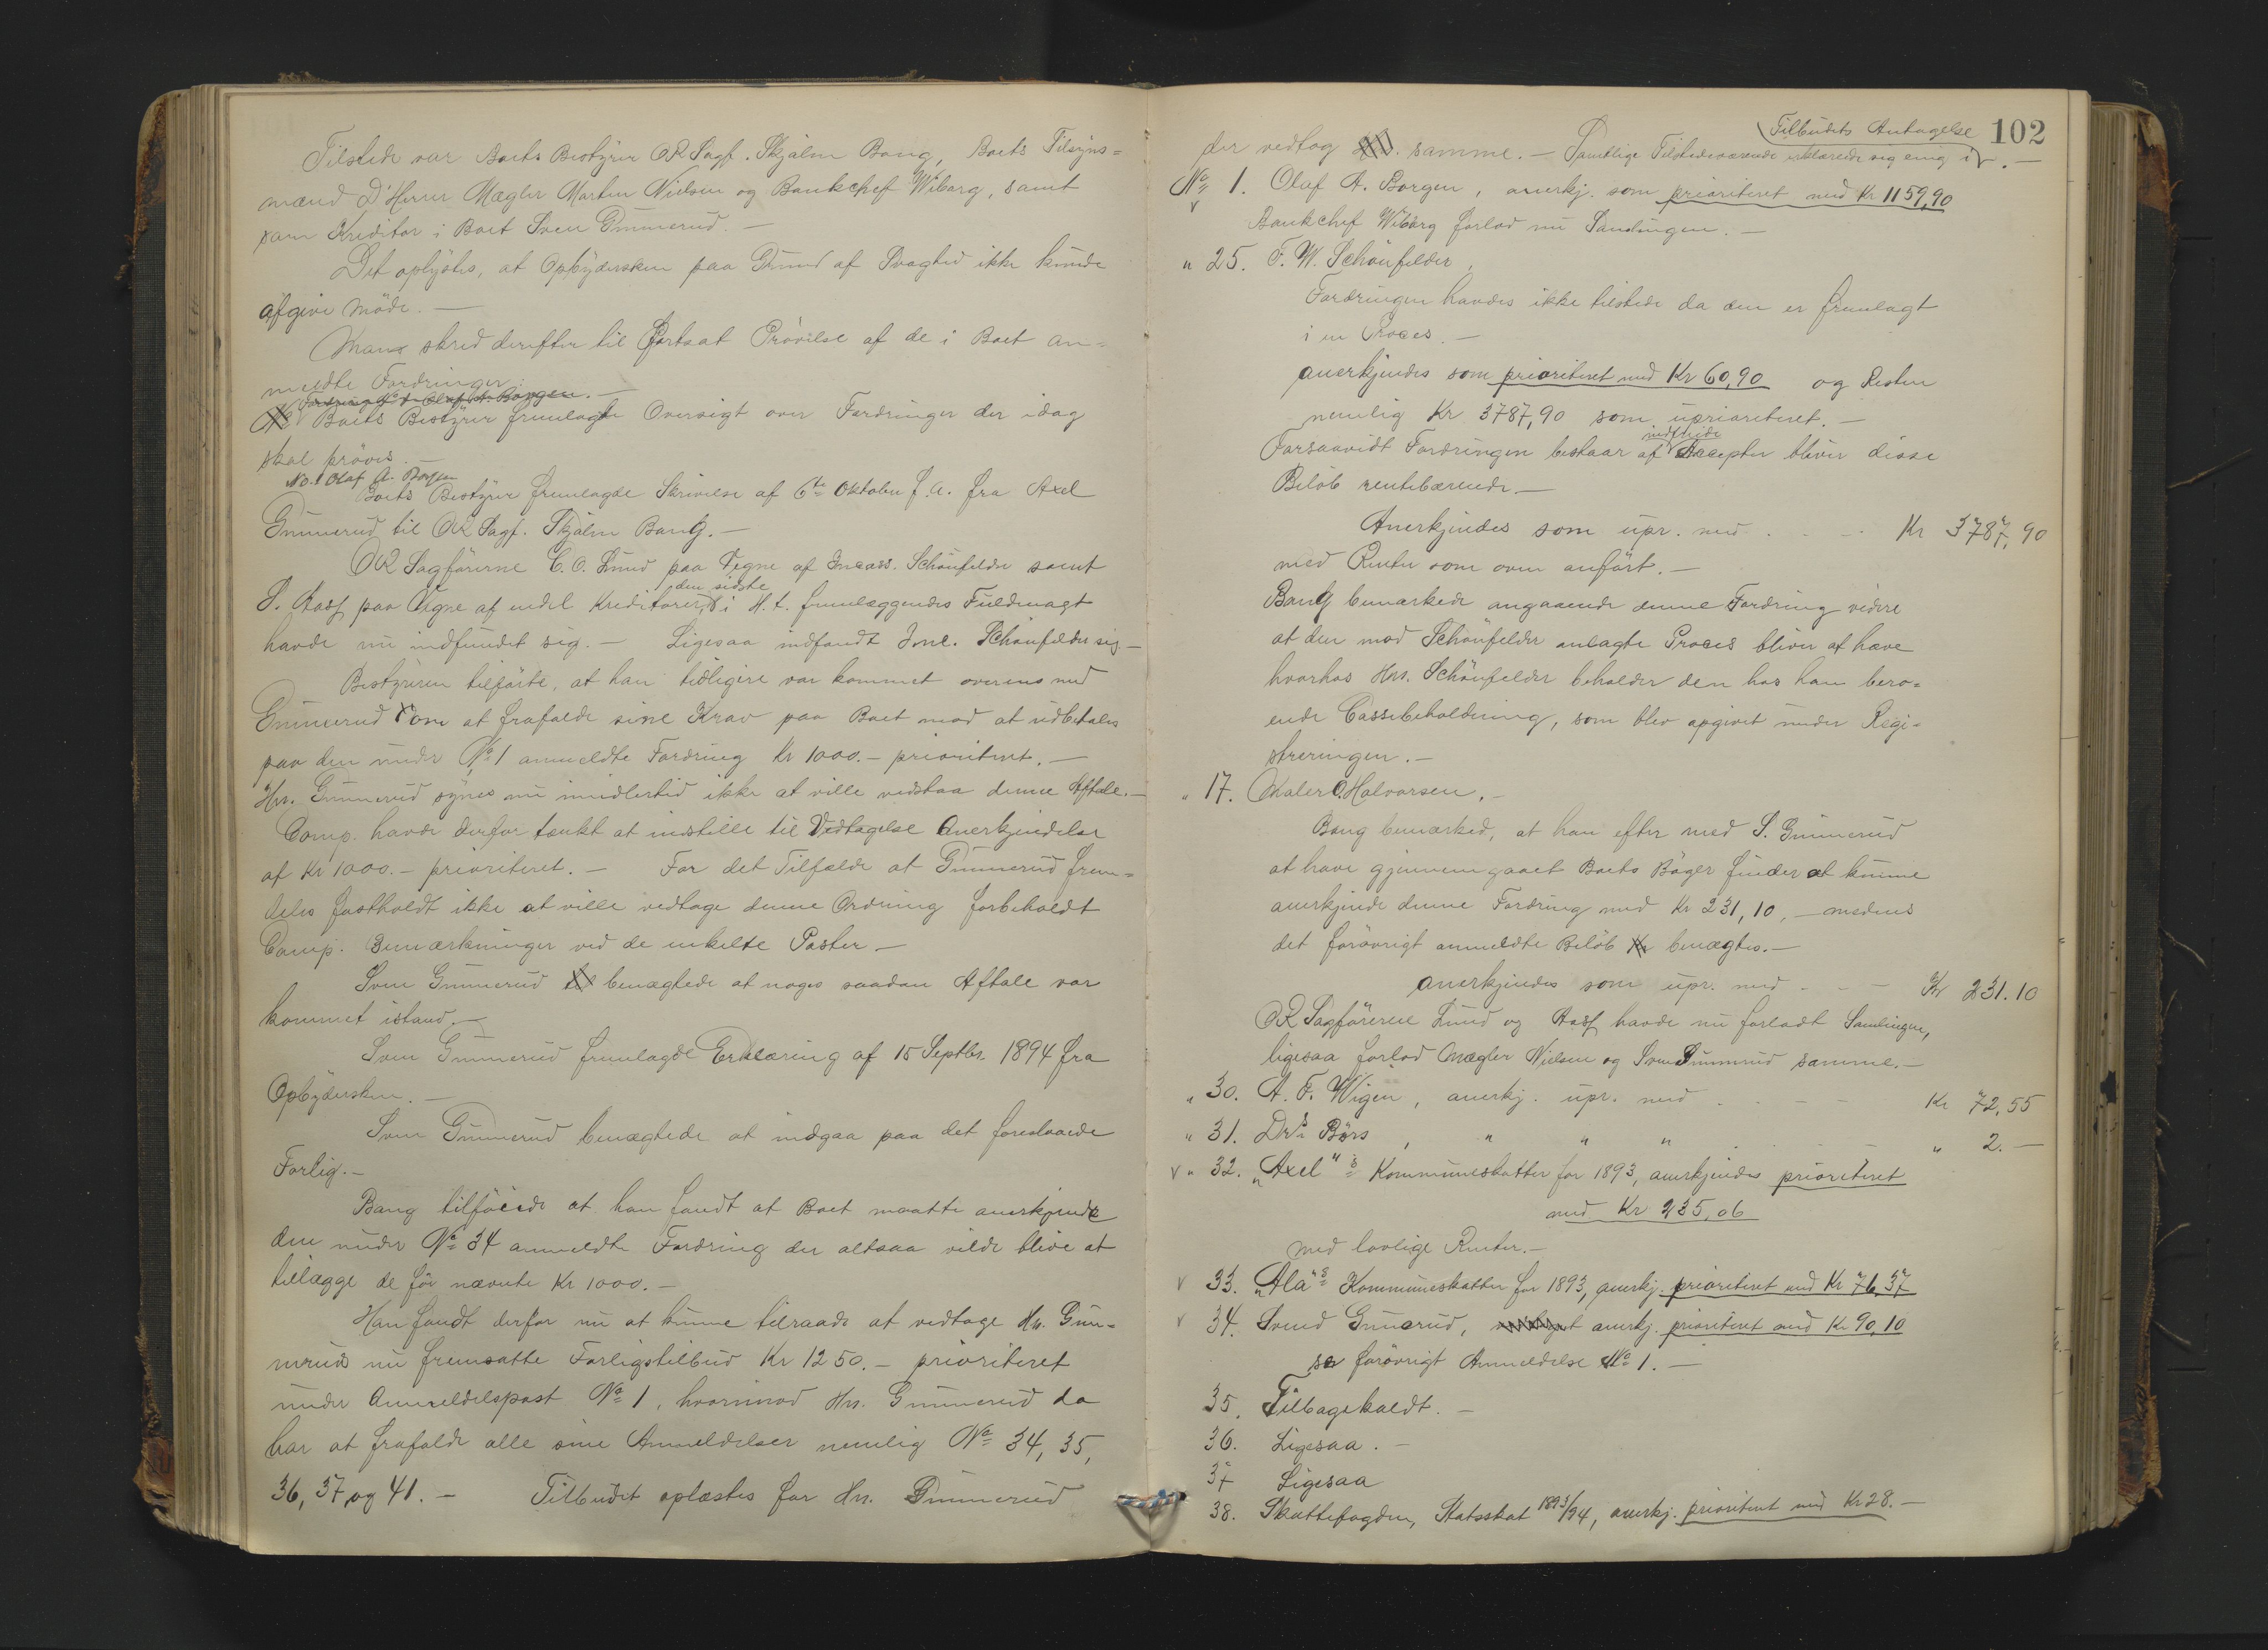 Tilstede var Boets Bestyrer OR Sagf. Skjalm Bang, Boets Tilsyns=
mænd D'Herrer Mægler Morten Nielsen og Bankchef Wiborg, samt
som Kreditor i Boet Sven Gunnerud. —
Det oplystes, at Opbydersken paa Grund af Svaghed ikke kunde
afgive Møde. —
Man skred derefter til fortsat Prøvelse af de i Boet an=
meldte Fordringer.
Fordring No 1 Olaf A. Borgen. —
Boets Bestyrer fremlagde Oversigt over Fordringer der idag
skal prøves. —
No. 1 Olaf A. Borgen
Boets Bestyrer fremlagde Skrivelse af 6te Oktober f.A. fra Axel
Gunnerud til OR Sagf. Skjalm Bang. —
OR Sagførerne C.O. Lund paa Vegne af Incass. Schönfelder samt
S. Aass paa Vegne af endel Kreditorer, den sidste i H.t. fremlæggendes Fuldmagt
havde nu indfundet sig. — Ligesaa indfandt Inc. Schönfelder sig —
Bestyreren tilførte, at han tidligere var kommet overens med
Gunnerud om at frafalde sine Krav paa Boet mod at udbetales
paa den under No 1 anmeldte Fordring Kr 1000.— prioriteret. —
Hr. Gunnerud synes nu imidlertid ikke at ville vedstaa denne Aftale. —
Comp. havde derfor tænkt at indstille til Vedtagelse Anerkjendelse
af Kr 1000.— prioriteret. — For det Tilfælde at Gunnerud frem=
deles fastholdt ikke at ville vedtage denne Ordning forbeholdt
Comp. Bemærkninger ved de enkelte Poster —
Sven Gunnerud benægtede at noges saadan Aftale var
kommet istand. —
Sven Gunnerud fremlagde Erklæring af 15 Septbr. 1894 fra
Opbydersken. —
Sven Gunnerud benægtede at indgaa paa det foreslaaede
Forlig. —
Bang tilføiede at han fandt at Boet maatte anerkjende
den under No 34 anmeldte Fordring der altsaa vilde blive at
tillægge de før nævnte Kr 1000. —
Han fandt derfor nu at kunne tilraade at vedtage Hr. Gun=
neruds nu fremsatte Forligstilbud Kr 1250.— prioriteret
under Anmeldelspost No 1, hvorimod Hr. Gunnerud da
har at frafalde alle sine Anmeldelser nemlig No 34, 35,
36, 37 og 41. — Tilbudet oplæstes for Hr. Gunnerud
102
der vedtog samme. — Samtlige Tilstedeværende erklærede sig enig i Tilbudets Antagelse. —
No 1. Olaf A. Borgen, anerkj. som prioriteret med Kr 1159,90
Bankchef Wiborg forlod nu Samlingen. —
" 25. F. W. Schönfelder,
Fordringen havdes ikke tilstede da den er fremlagt
i en Proces. —
anerkjendes som prioriteret med Kr 60,90 og Resten
nemlig Kr 3787,90 som uprioriteret. —
Forsaavidt Fordringen bestaar af indfriede Accepter bliver disse
Beløb rentebærende. —
Anerkjendes som upr. med . - - - Kr 3787,90
med Renter som oven anført. —
Bang bemærkede angaaende denne Fordring videre
at den mod Schönfelder anlagte Proces bliver at hæve
hvorhos Hr. Schönfelder beholder den hos ham bero=
ende Cassebeholdning, som blev opgivet under Regi=
streringen. —
" 17. Maler O. Halvorsen. —
Bang bemærked, at han efter med S. Gunnerud
at have gjennemgaaet Boets Bøger finder at kunne
anerkjende denne Fordring med Kr 231,10, — medens
det forøvrigt anmeldte Beløb benægtes. —
anerkjendes som upr. med - - - Kr 231.10
OR Sagførerne Lund og Aass havde nu forladt Samlingen,
ligesaa forlod Mægler Nielsen og Sven Gunnerud samme. —
" 30. A. F. Wigen, anerkj. upr. med . - - - Kr 72,55
" 31. Dr. Børs, " " " . - - - " 2. —
v " 32. "Axel"s Kommuneskatter for 1893, anerkjendes prioriteret
med Kr 235,06
med lovlige Renter. —
v 33. "Ala"s Kommuneskatter for 1893, anerkj. prioriteret med Kr 76,37
v 34. Svend Gunnerud, anerkj. prioriteret med Kr 90,10
se forøvrigt Anmeldelse No 1. —
35. Tilbagekaldt. —
36. Ligesaa. —
37 Ligesaa
38. Skattefogden, Statsskat 1893/94, anerkj. prioriteret med Kr 28. —